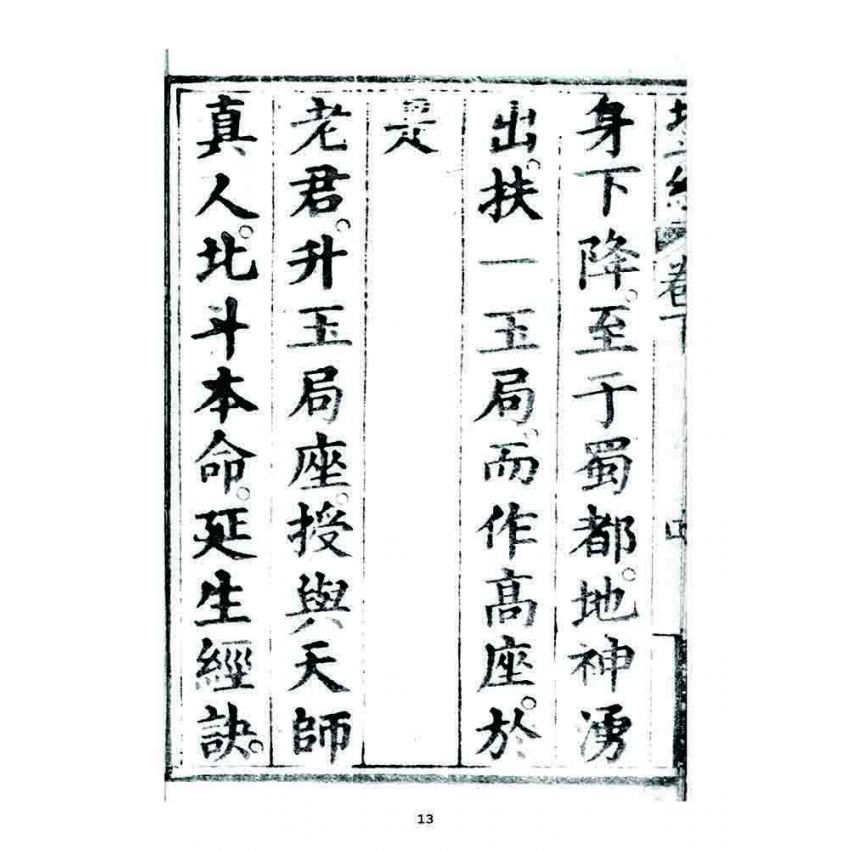 卷下
身下降。至于蜀都。地神湧
出。扶一玉局。而作高座。於
是
老君。升玉局座。授與天師
真人。北斗本命。延生經訣。
13